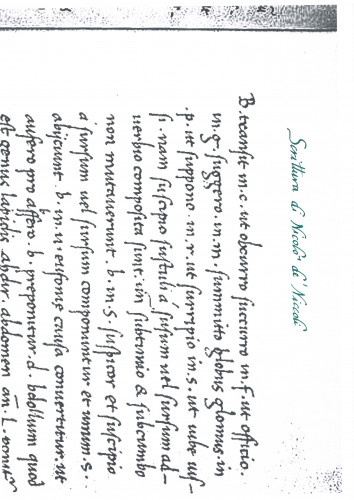 Scrittura di Nicolò de' Niccoli
B. transit in. c. ut obcurro succurro in. f. ut officio.
in. g. suggero. in. m. summitto globus glomus. in
.p. ut suppono. in. r. ut surripio in. s. ut iube ius-
si. nam suscipio sustuli a susum uel sursum ad-
uerbio composita sunt. subtinnio & subcumbo
non mutauerunt. b. in. s suspicor et suscipio
a sursum uel sursum componuntur et unum. s.
abiiciunt. b. in. u eufonię causa conuertitur. ut
aufero pro abfero. b. preponitur. d. bdellium quod
est genus lapidis abdir. abdomen an. l.